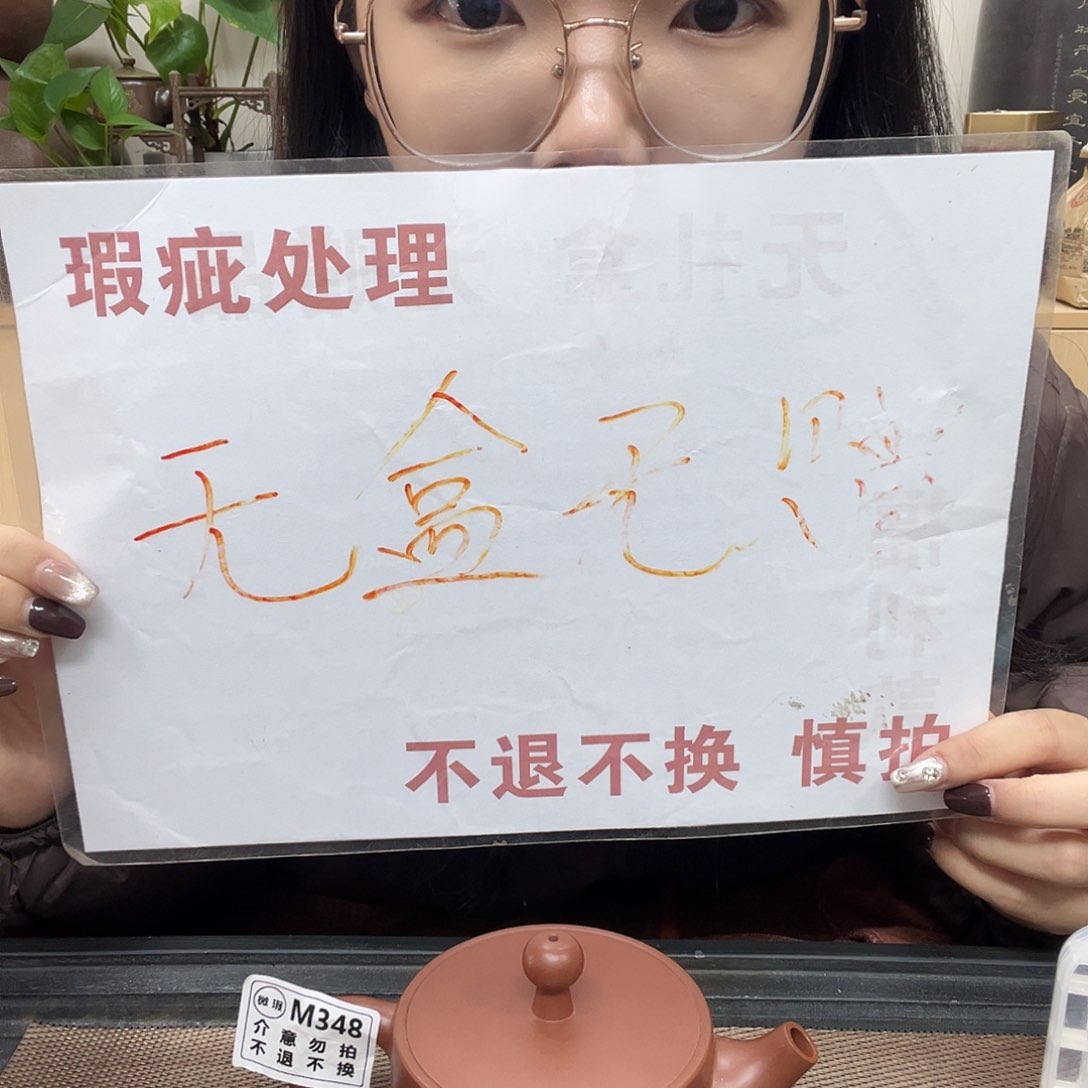 瑕疵处理
无盒无赠
不退不换 慎拍
微瑕 M348
介意勿拍
不退不换